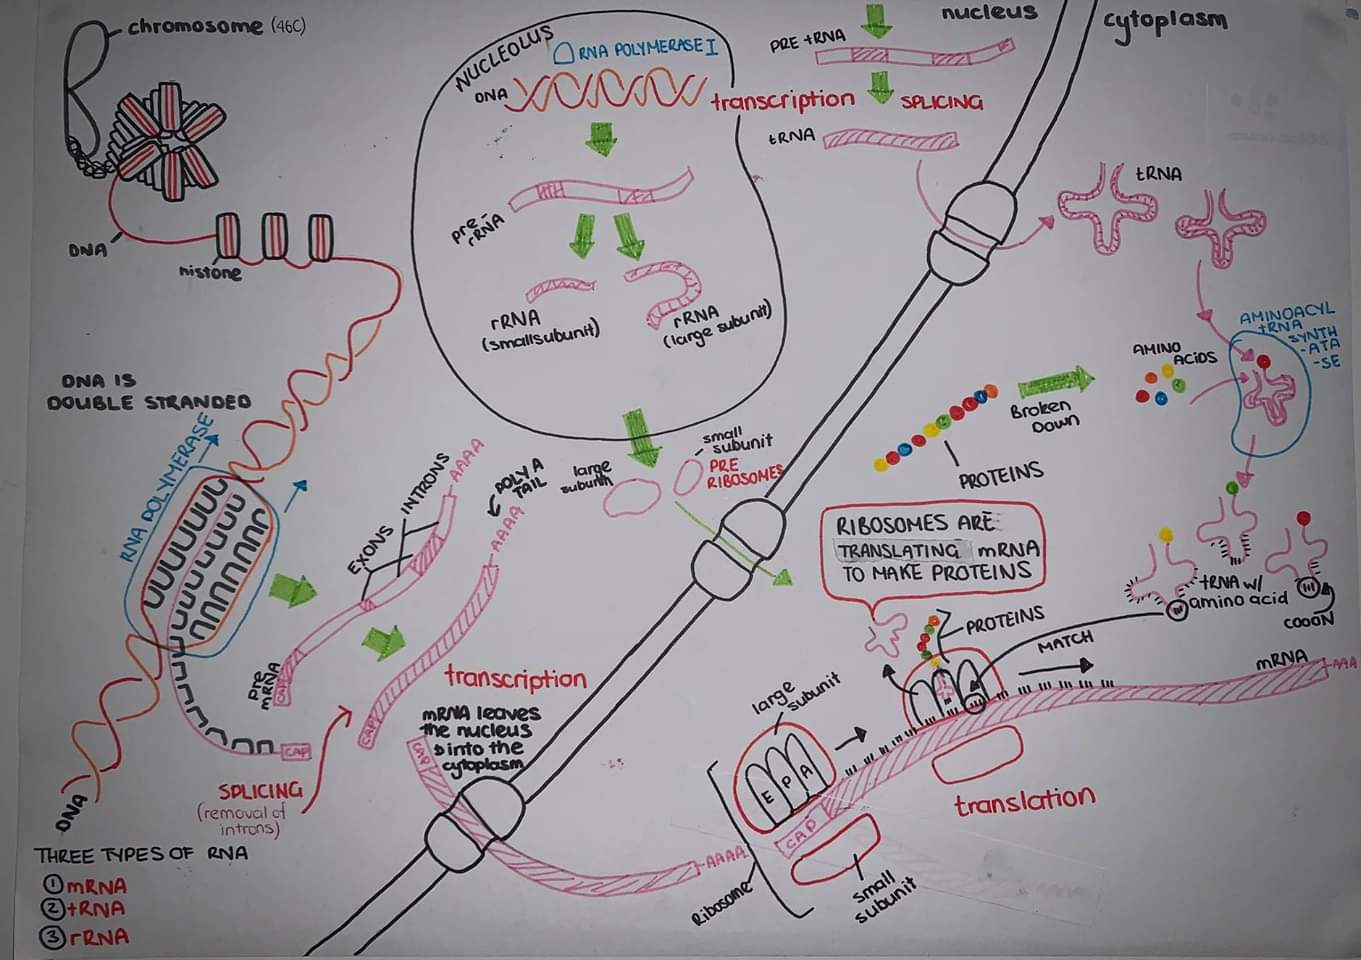 chromosome (46C)
DNA
histone
DNA IS
DOUBLE STRANDED
RNA POLYMERASE
DNA
THREE TYPES OF RNA
① mRNA
② tRNA
③ rRNA
EXONS
INTRONS
AAAA
POLY A
TAIL
AAAA
pre
mRNA
CAP
CAP
CAP
SPLICING
(removal of
introns)
transcription
mRNA leaves
the nucleus
into the
cytoplasm
CAP
AAAA
NUCLEOLUS
RNA POLYMERASE I
DNA
pre-
rRNA
rRNA
(small subunit)
rRNA
(large subunit)
large
subunit
small
subunit
PRE
RIBOSOMES
nucleus
PRE tRNA
transcription
SPLICING
tRNA
cytoplasm
tRNA
AMINOACYL
tRNA
SYNTH
-ATA
-SE
AMINO
ACIDS
Broken
Down
PROTEINS
RIBOSOMES ARE
TRANSLATING mRNA
TO MAKE PROTEINS
tRNA w/
amino acid
COOON
PROTEINS
MATCH
mRNA
AAA
large
subunit
E P A
CAP
Ribosome
small
subunit
translation